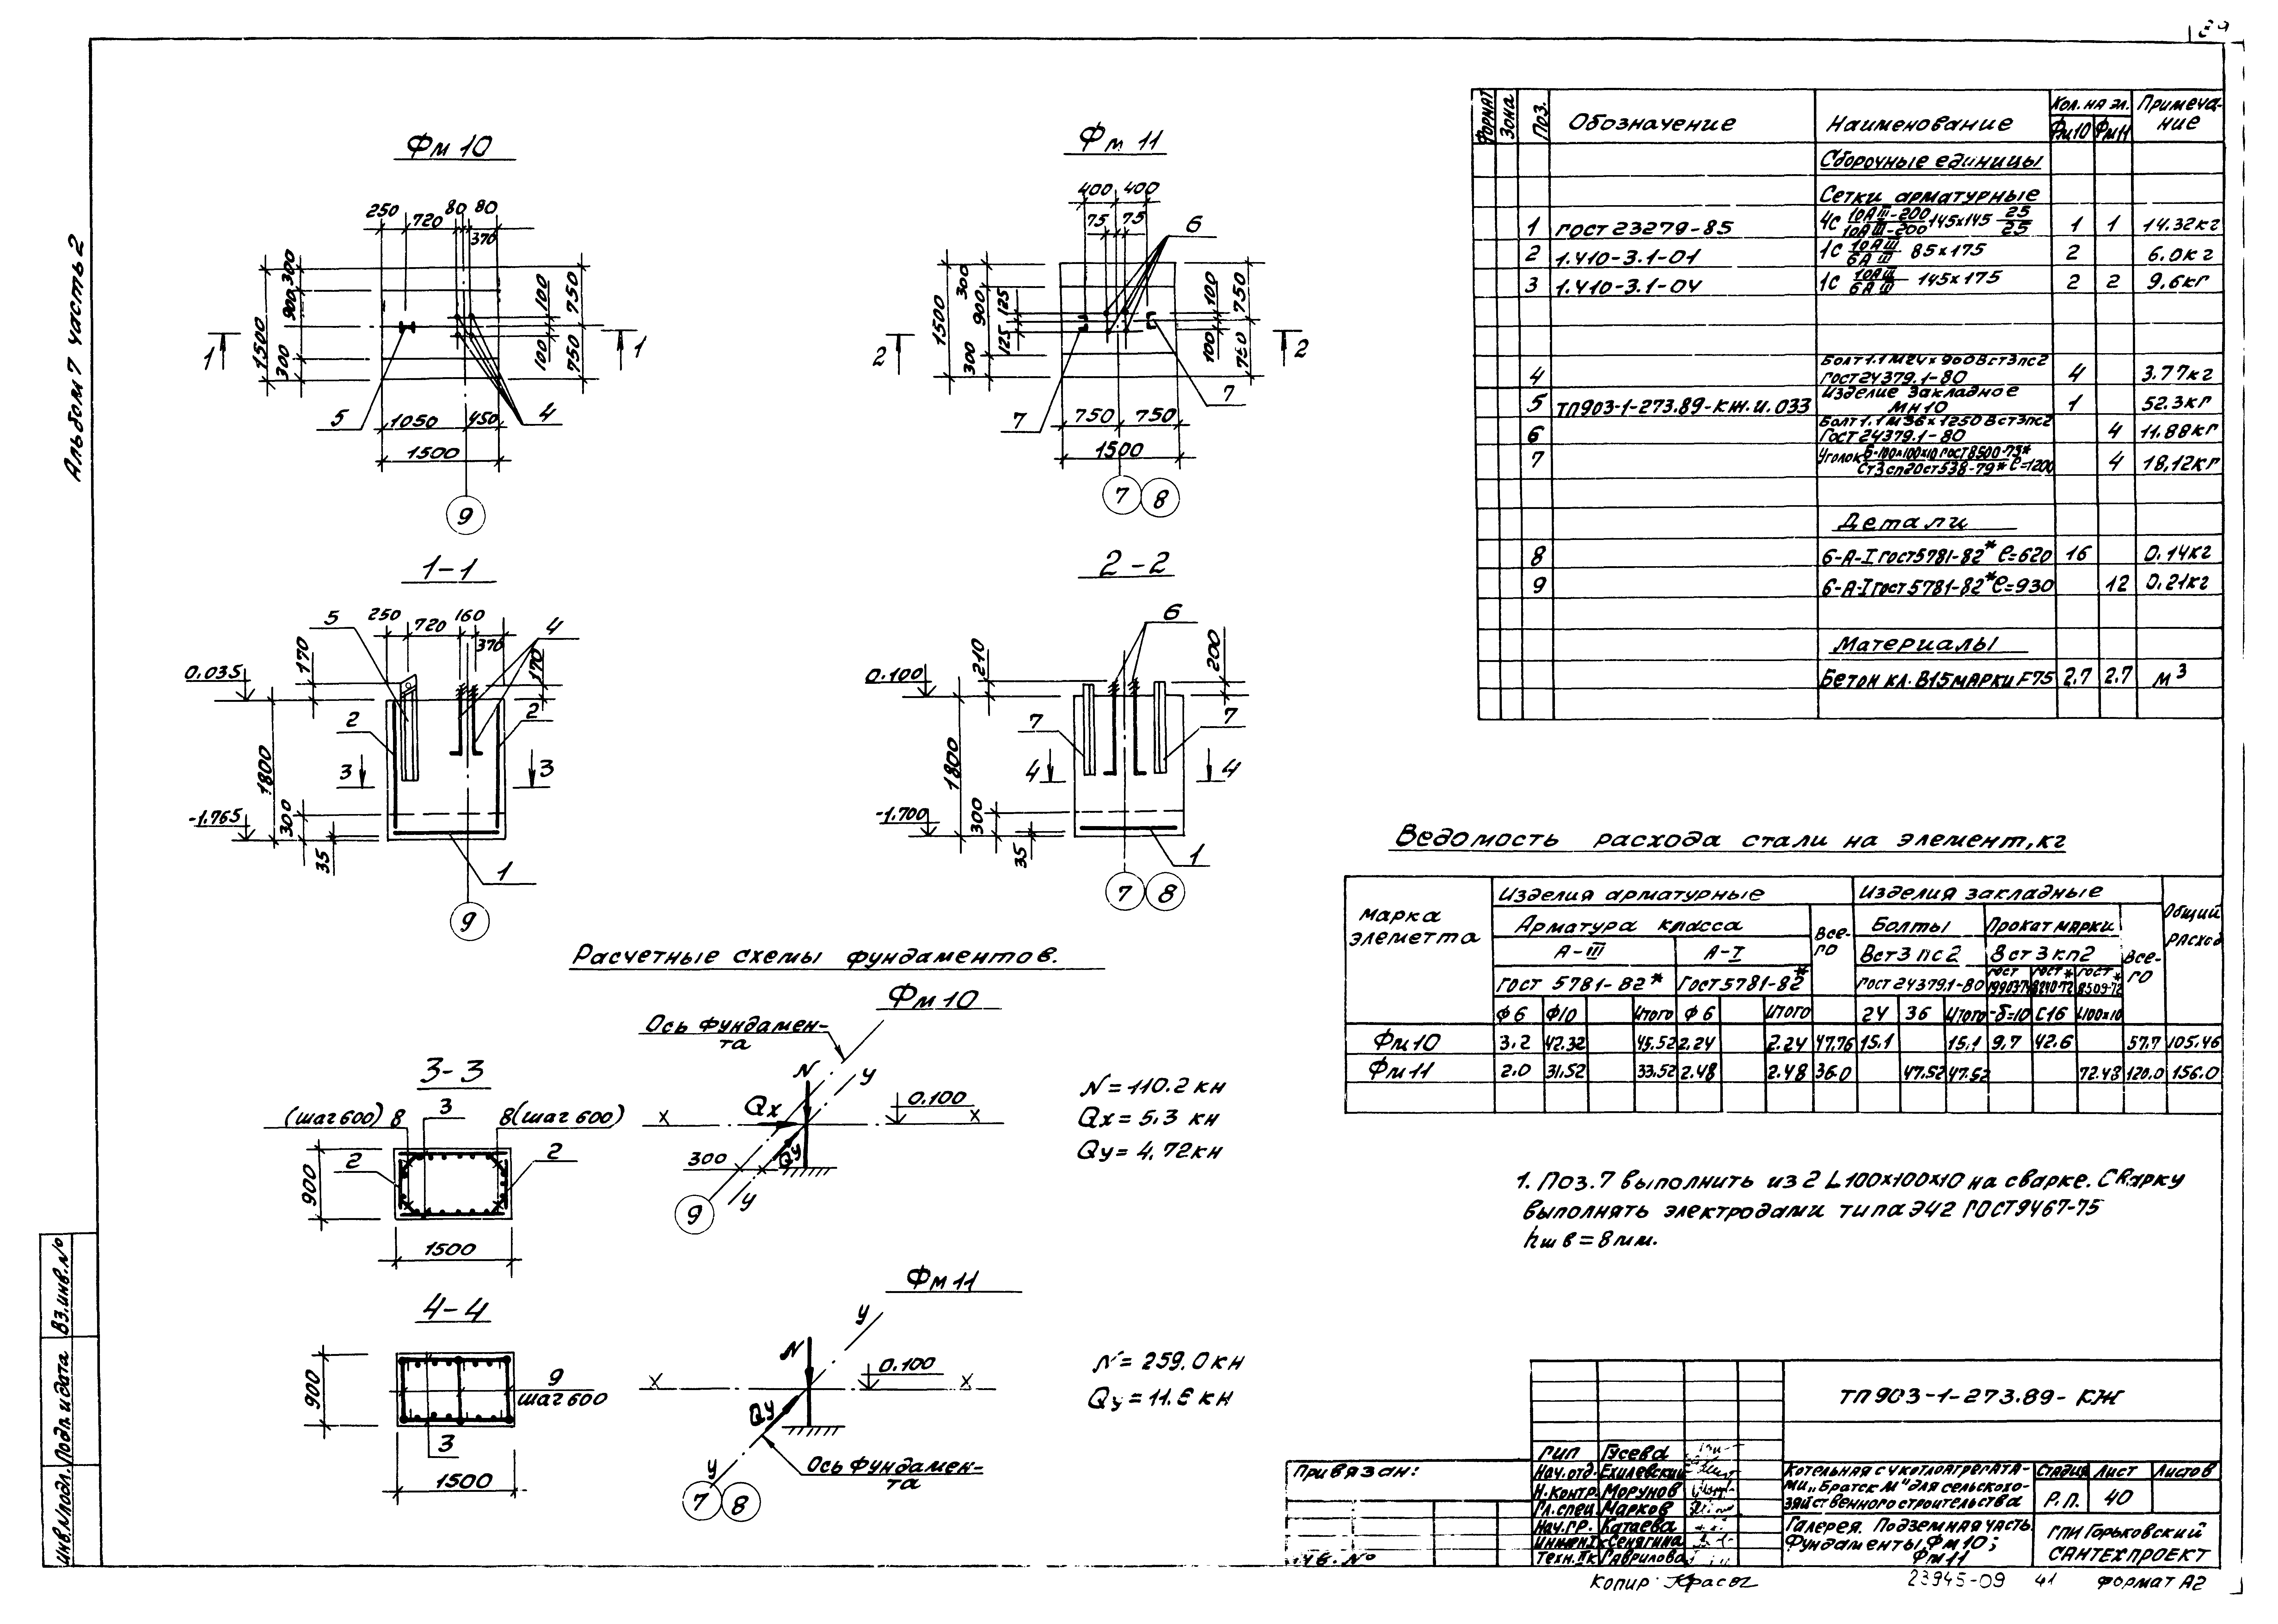 Альбом 7 часть 2
Фм 10
250 720 80 80
370
300
900
1500
300
100
100
750
750
1 1
5 4
1050 450
1500
9
Фм 11
400 400
75 75
6
300
900
1500
300
125
125
100
100
750
750
2 2
7 7
750 750
1500
7 8
1-1
5 250 720 160 4
370
170 170
0.035
2 2
1800
3 3
-1.765
300
35
1
9
2-2
6
210 200
0.100
7 7
1800
4 4
-1.700
300
35
1
7 8
Расчетные схемы фундаментов.
Фм 10
Ось фундамен-
та
N
У
Qx
0.100
X X
Qу
300
У
9
N = 110.2 кн
Qx = 5.3 кн
Qу = 4.72кн
3-3
(шаг 600) 8 3 8(шаг 600)
2 2
900
1500
4-4
900
9
шаг 600
3
1500
Фм 11
У
N
0.100
X X
Qу
Ось фундамен-
та
У
7 8
N = 259.0 кн
Формат Зона Поз. Обозначение Наименование Кол. на эл. Примеча-
ние
Фм10 Фм11
Сборочные единицы
Сетки арматурные
1 ГОСТ 23279-85 4С 10АIII-200/10АIII-200 145х145 25/25 1 1 14.32кг
2 1.410-3.1-01 1С 10АIII/6АIII 85х175 2 6.0кг
3 1.410-3.1-04 1С 10АIII/6АIII 145х175 2 2 9,6кг
Болт 1.1 М24 х 900 Вст3пс2
4 ГОСТ 24379.1-80 4 3.77кг
Изделие закладное
5 ТП903-1-273.89-КЖ.И.033 МН10 1 52.3кг
Болт 1.1 М36 х 1250 Вст3пс2
6 ГОСТ 24379.1-80 4 11.88кг
7 Уголок 4 18,12кг
Детали
8 6-А-I ГОСТ5781-82* ℓ=620 16 0.14кг
9 6-А-I ГОСТ5781-82* ℓ=930 12 0.21кг
Материалы
Бетон кл. В15 марки F75 2.7 2.7 м³
Ведомость расхода стали на элемент, кг
Марка
элеметта
Изделия арматурные Изделия закладные Общий
расход
Арматура класса Все-
го Болты Прокат марки Все-
го
А-III А-I Вст3пс2 Вст3кп2
ГОСТ 5781-82* ГОСТ5781-82* ГОСТ24379.1-80 ГОСТ 19903-74 ГОСТ* 8240-72 ГОСТ* 8509-72
Ф6 Ф10 Итого Ф6 Итого 24 36 Итого -δ=10 С16 L100х10
Фм10 3.2 42.32 45.52 2.24 2.24 47.76 15.1 15.1 9.7 42.6 57.7 105.46
Фм11 2.0 31.52 33.52 2.48 2.48 36.0 47.52 47.52 72.48 120.0 156.0
1. Поз. 7 выполнить из 2 L100х100х10 на сварке. Сварку
выполнять электродами типа Э42 ГОСТ9467-75
hшв = 8мм.
Взинв.№
Подп. и дата
Инв.№подл.
Привязан:
ТП 903-1-273.89- КЖ
ГИП Гусева
Нач.отд. Ехилевский
Н.контр. Морунов
Гл.спец Марков
Нач.гр. Катаева
Инжен Iк Сенягина
Техн. IIк Гаврилова
Котельная с 4 котлоагрегата-
ми „Братск М" для сельскохо-
зяйственного строительства
Стадия Лист Листов
Р.П. 40
Галерея. Подземная часть.
Фундаменты Фм 10;
Фм 11
ГПИ Горьковский
САНТЕХПРОЕКТ
Копир:
23945-09 41 Формат А2